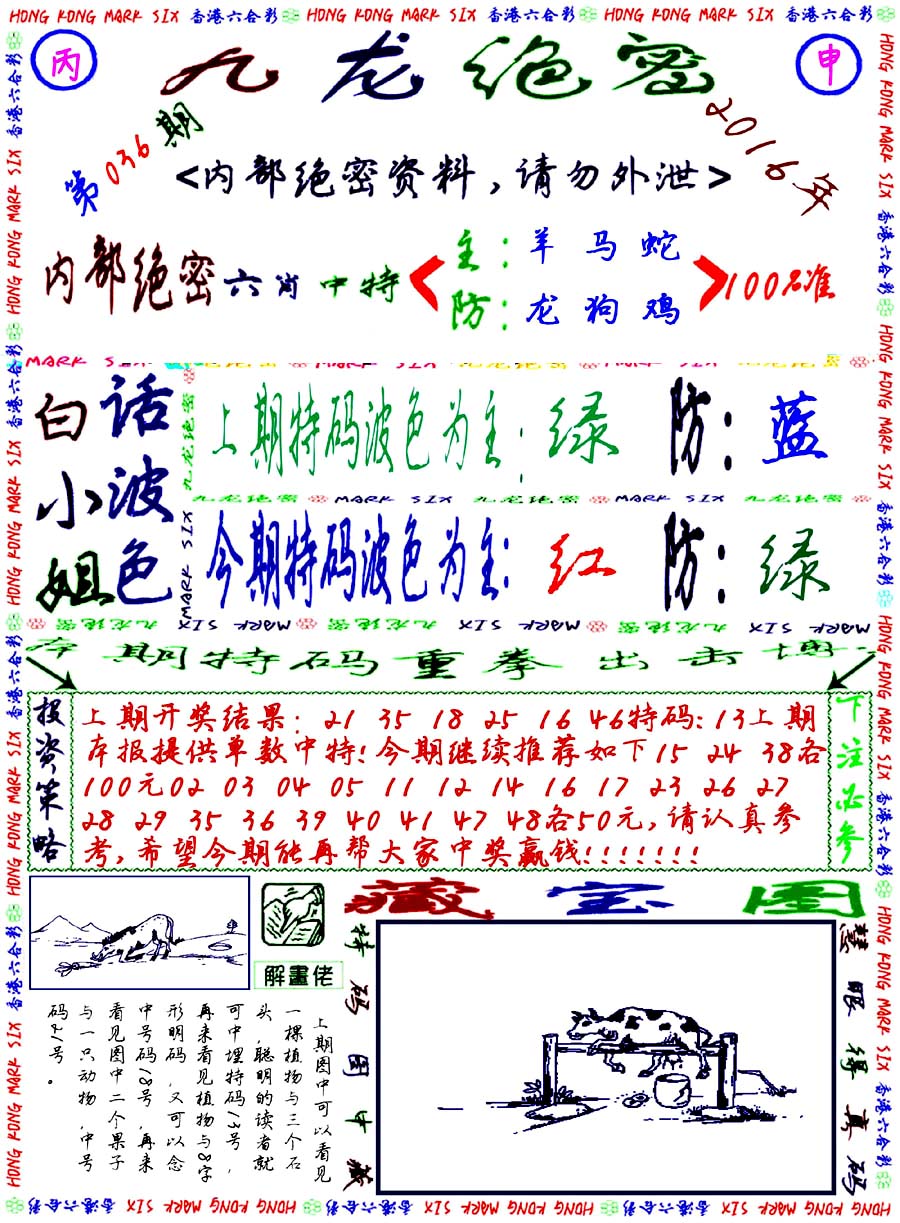 HONG KONG MARK SIX 香港六合彩 HONG KONG MARK SIX 香港六合彩 HONG KONG MARK SIX 香港六合彩
丙
九龙绝密
申
第036期
2016年
<内部绝密资料,请勿外泄>
内部绝密六肖中特
主:羊马蛇
防:龙狗鸡
100%准
白话小波姐色
上期特码波色为主:绿 防:蓝
九龙绝密 MARK SIX 九龙绝密 MARK SIX 九龙绝密
今期特码波色为主:红 防:绿
本期特码重拳出击博
投资策略
上期开奖结果:21 35 18 25 16 46特码:13上期
本报提供单数中特!今期继续推荐如下15 24 38各
100元02 03 04 05 11 12 14 16 17 23 26 27
28 29 35 36 39 40 41 47 48各50元,请认真参
考,希望今期能再帮大家中奖赢钱!!!!!!!
下注必参
解畫佬
藏宝图
上期图中可以看见
一棵植物与三个石
头,聪明的读者就
可中埋特码13号,
再来看见植物与8字
形明码,又可以念
中号码18号,再来
看见图中二个果子
与一只动物,中号
码21号。
特码图中藏
慧眼得真码
HONG KONG MARK SIX 香港六合彩 HONG KONG MARK SIX 香港六合彩 HONG KONG MARK SIX 香港六合彩